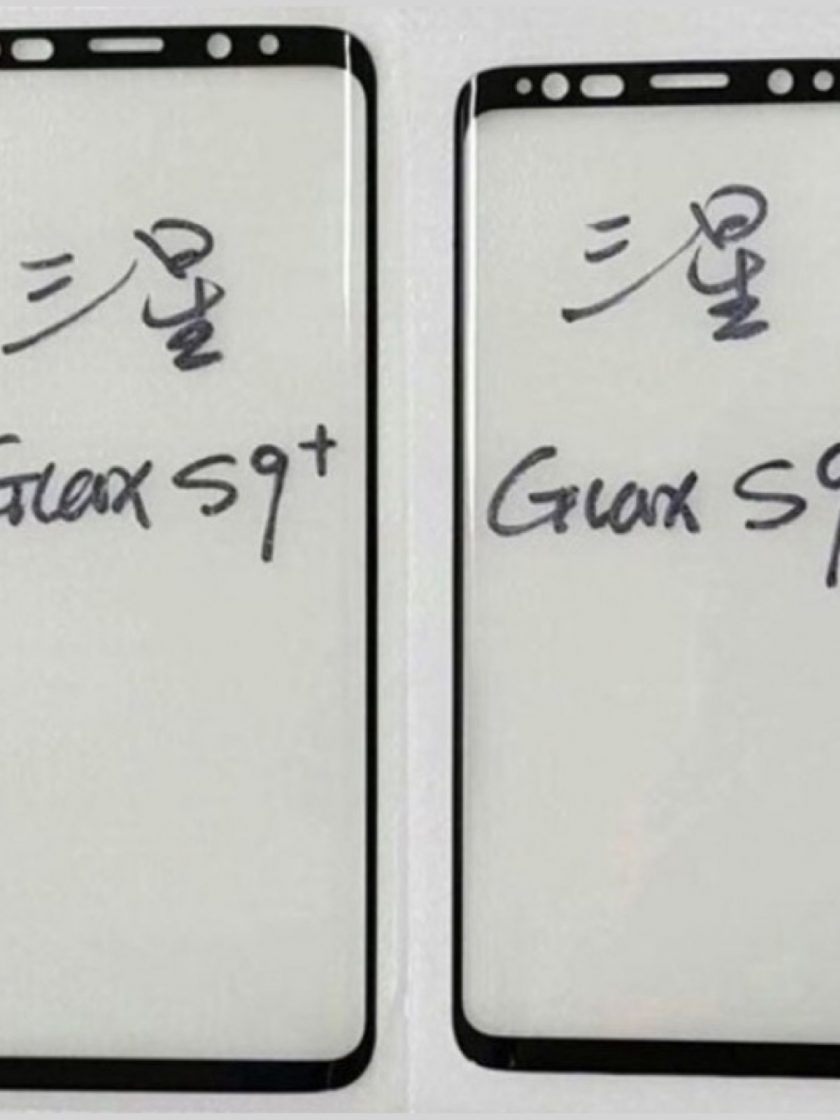 三星
Galax S9+
三星
Galax S9